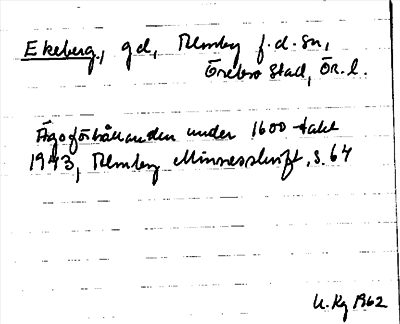 Ekeberg, gd, Almby f.d. sn,
Örebro stad, Ör. l.
Ägoförhållanden under 1600-talet
1943, Almby Minnesskrift, s. 64
U. Kg 1962